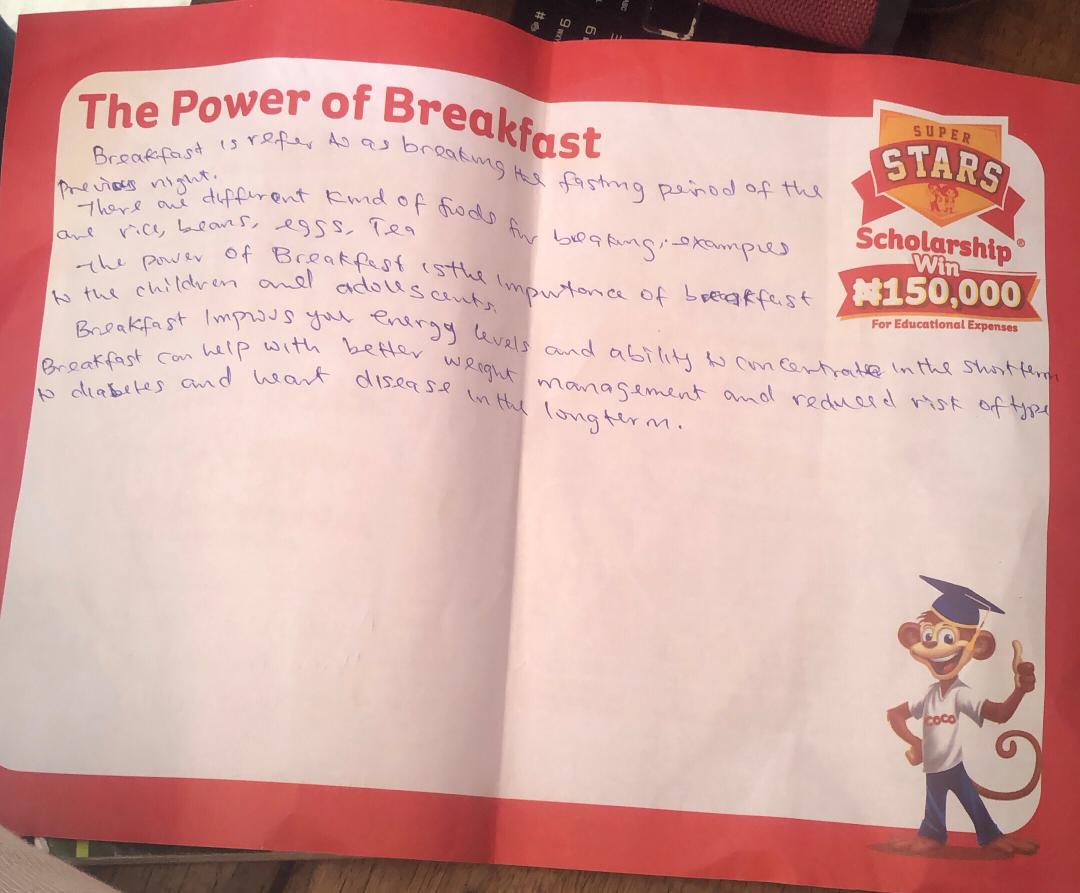 The Power of Breakfast
Breakfast is refer to as breaking the fasting period of the
previous night.
There are different kind of foods for breaking. examples
are rice, beans, eggs, Tea
The power of Breakfast is the importance of breakfast
to the children and adolescents.
Breakfast Improvs your energy levels and ability to concentrate in the short term
Breakfast can help with better weight management and reduced risk of type
to diabetes and heart disease in the long term.
SUPER
STARS
Scholarship®
Win
₦150,000
For Educational Expenses
COCO